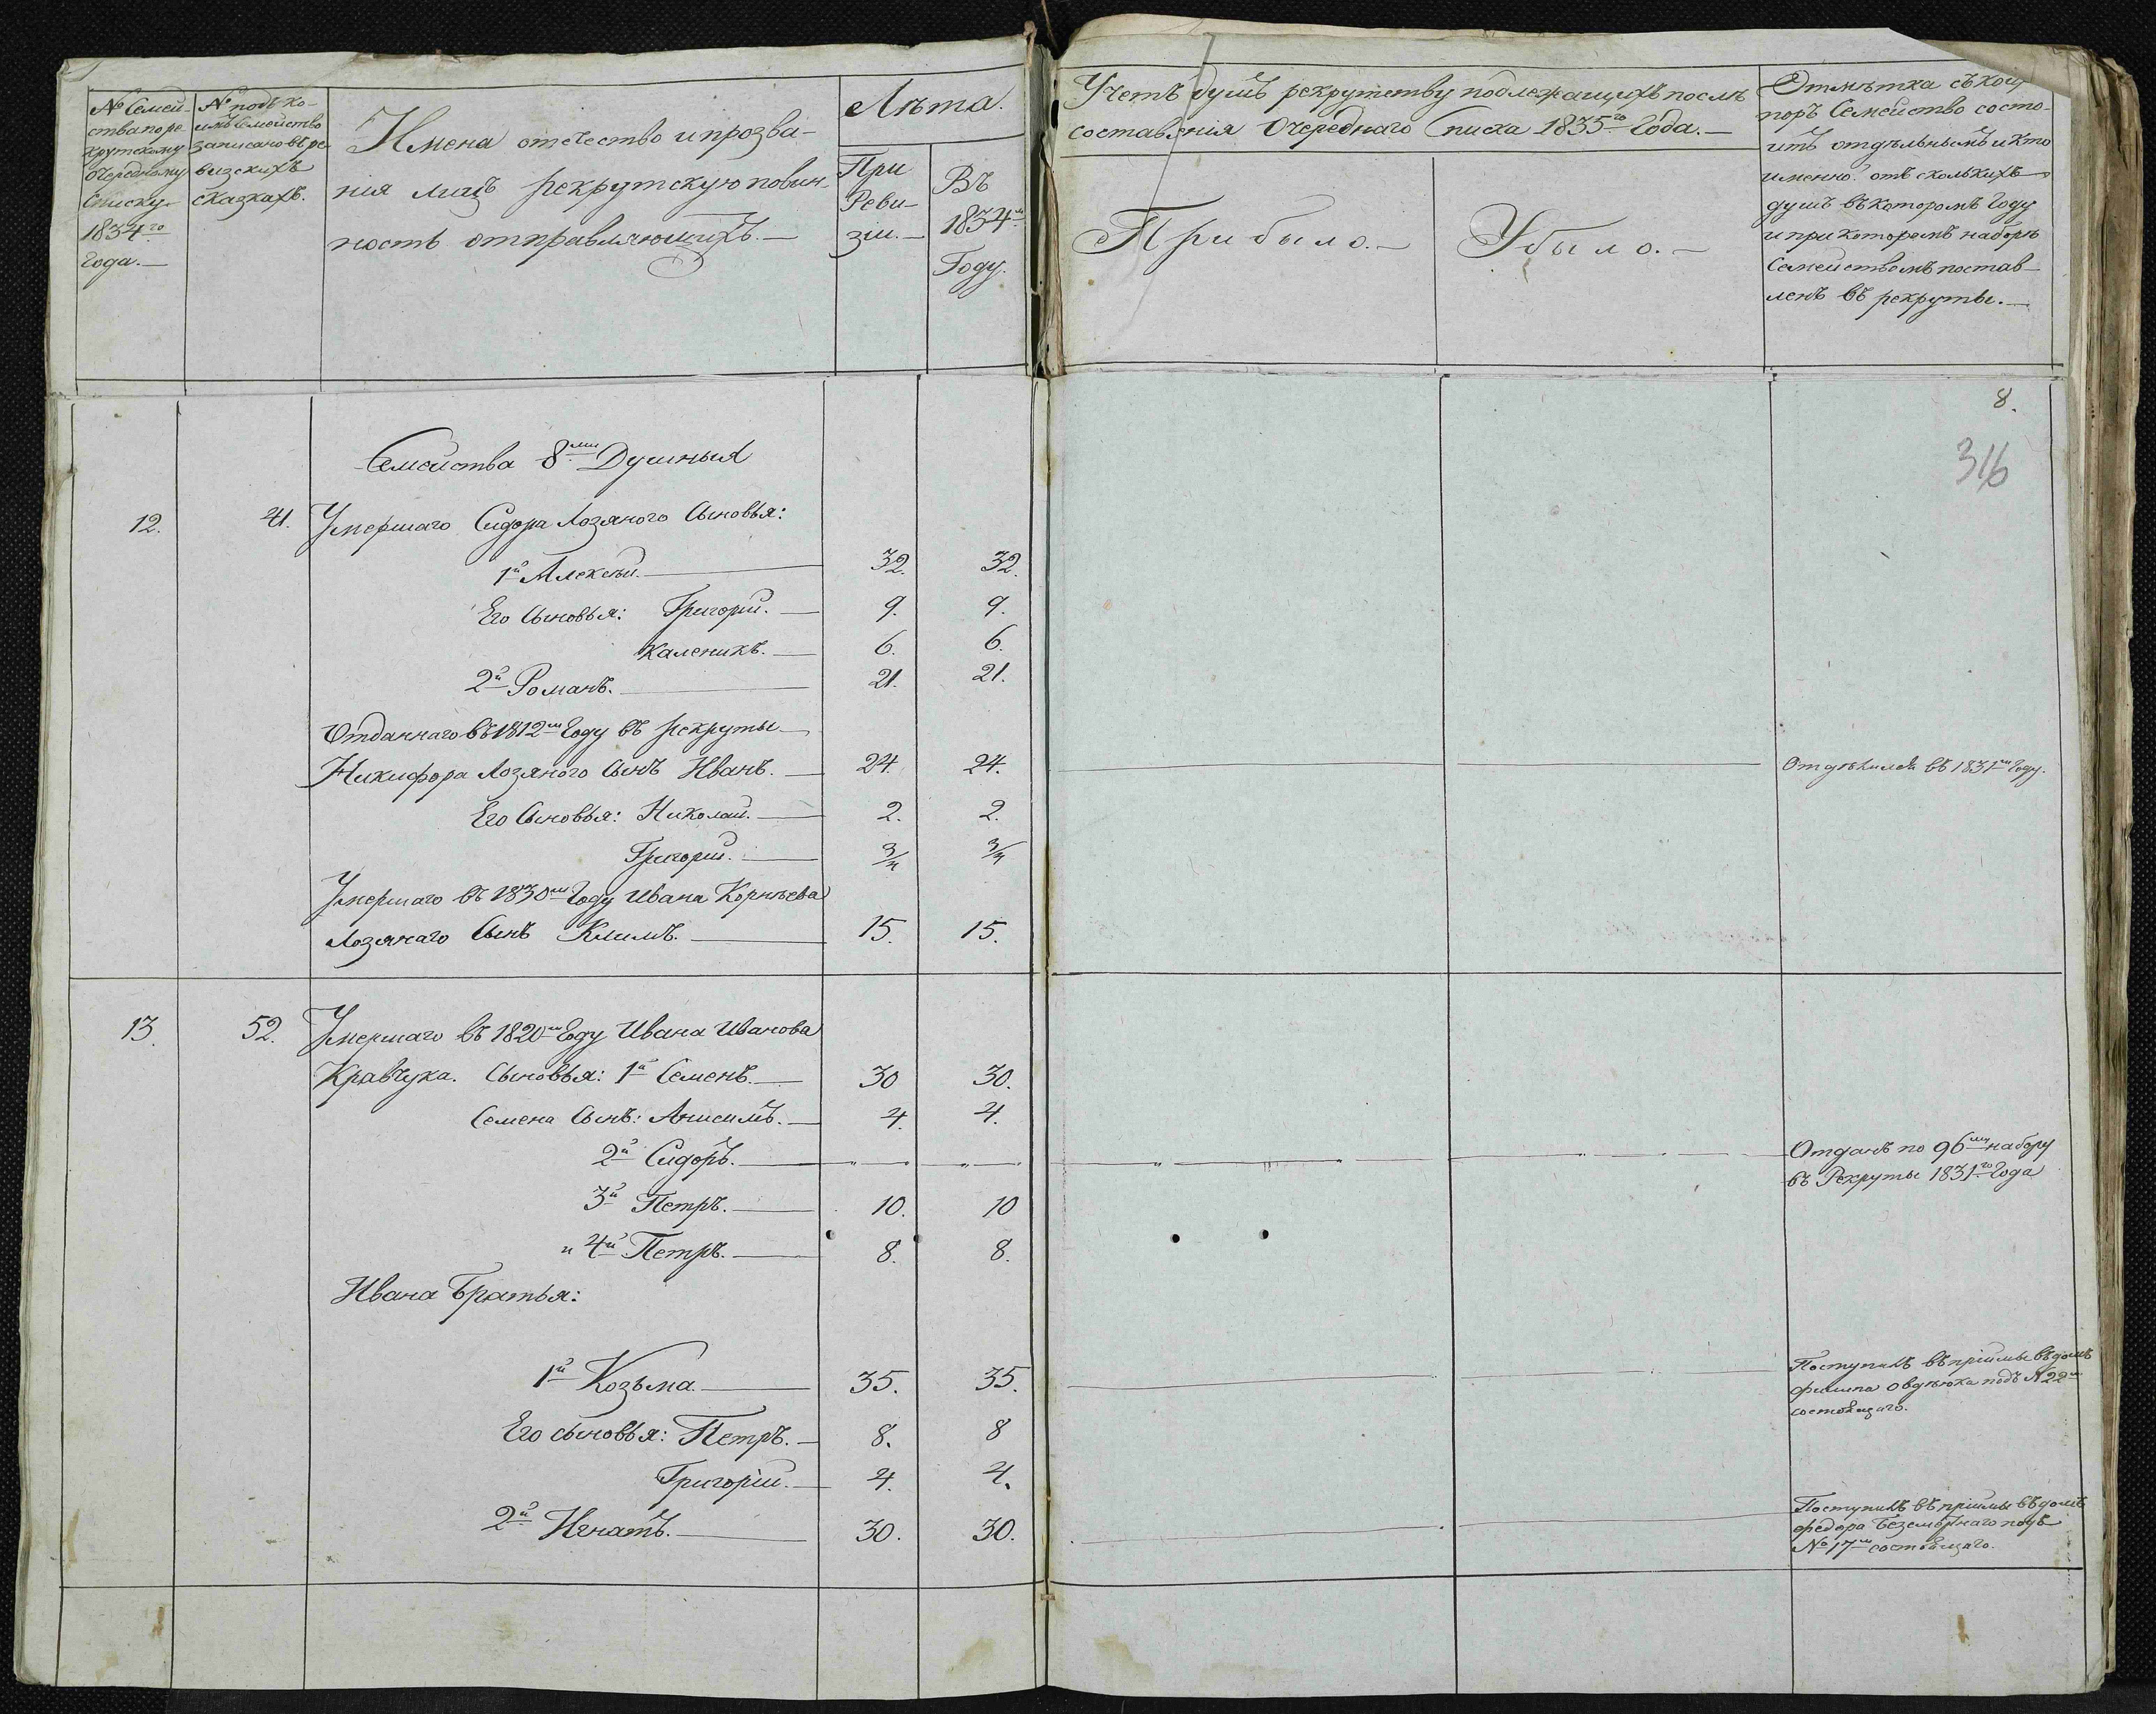 № Семей-
ства по ре
крутскому
очередному
списку
1834го
года.—
№ подъ ко-
имъ семейство
записано въ ре
визскихъ
сказкахъ.
Имена отечество и прозва-
нія лицъ рекрутскую повин-
ность отправляющихъ.—
Лѣта.
При
Реви-
зіи.—
Въ
1834м
Году.
Учетъ душъ рекрутству подлежащихъ послѣ
составленія Очереднаго Списка 1835го Года.—
Прибыло.—
Убыло.—
Отмѣтка съ коихъ
поръ Семейство состо-
итъ отдѣльнымъ и кто
именно отъ сколькихъ
душъ въ которомъ Году
и при которомъ наборѣ
Семействомъ постав-
ленъ въ рекруты.—
8.
316
Семейства 8ми Душныя
12. 41. Умершаго Сидора Лозяного Сыновья:
1й Алексѣй.— 32. 32.
Его Сыновья: Григорій.— 9. 9.
Каленикъ.— 6. 6.
2й Романъ.— 21. 21.
Отданнаго въ 1812м Году въ рекруты
Никифора Лозяного Сынъ Иванъ.— 24. 24. Отдѣлился въ 1831м Году.
Его Сыновья: Николай.— 2. 2.
Григорій.— 3/4 3/4
Умершаго въ 1830м Году Ивана Корнѣева
Лозянаго Сынъ Климъ.— 15. 15.
13. 52. Умершаго въ 1820м Году Ивана Иванова
Кравчука. Сыновья: 1й Семенъ.— 30 30.
Семена Сынъ: Анисимъ.— 4. 4.
2й Сидоръ.— Отданъ по 96му набору
въ Рекруты 1831го Года
3й Петръ.— 10. 10
и 4й Петръ.— 8. 8.
Ивана Братья:
1й Козьма.— 35. 35. Поступилъ въ пріймы въ домъ
филипа овдѣюка подъ №22м
состоящаго.
Его сыновья: Петръ.— 8. 8
Григорій.— 4. 4.
2й Игнатъ.— 30. 30. Поступилъ въ пріймы въ домъ
федора Безсмертнаго подъ
№ 17м состоящаго.